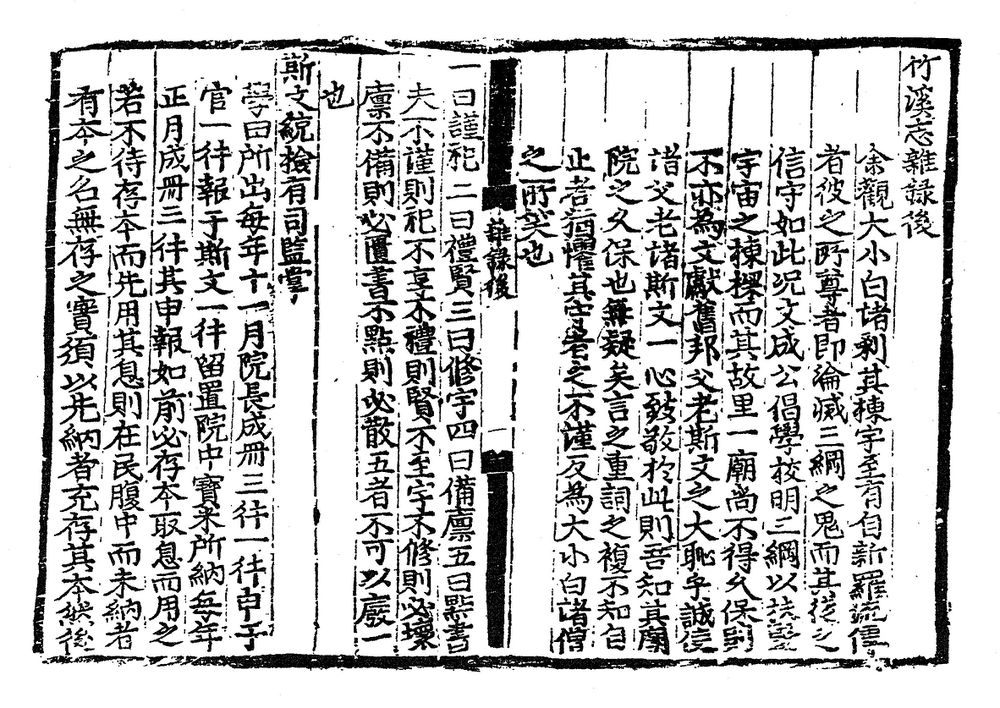 竹溪志雜錄後
余觀大小白諸刹其棟宇至有自新羅流傳
者彼之所尊者即淪滅三綱之鬼而其徒之
信守如此况文成公倡學校明三綱以
宇宙之棟樑而其故里一廟尚不得久保到
不亦為文獻舊邦父老斯文之大恥乎誠使
諸父老諸斯文一心致敬於此則吾知其廟
院之久保也無疑矣言之重詞之複不知自
止者猶懼其守者之不謹反為大小白諸僧
之所笑也
雜錄後
一曰謹祀二曰禮賢三曰修宇四曰備廩五曰點書
夫不謹則祀不享不禮則賢不至宇不修則必壞
廩不備則必匱書不點則必散五者不可以廢一
也
斯文統撿有司監掌
學田所出每年十一月院長成冊三件一件申于
官一件報于斯文一件留置院中寶米所納每年
正月成冊三件其申報如前必存本取息而用之
若不待存本而先用其息則在民腹中而未納者
有本之名無存之實須以先納者充存其本然後